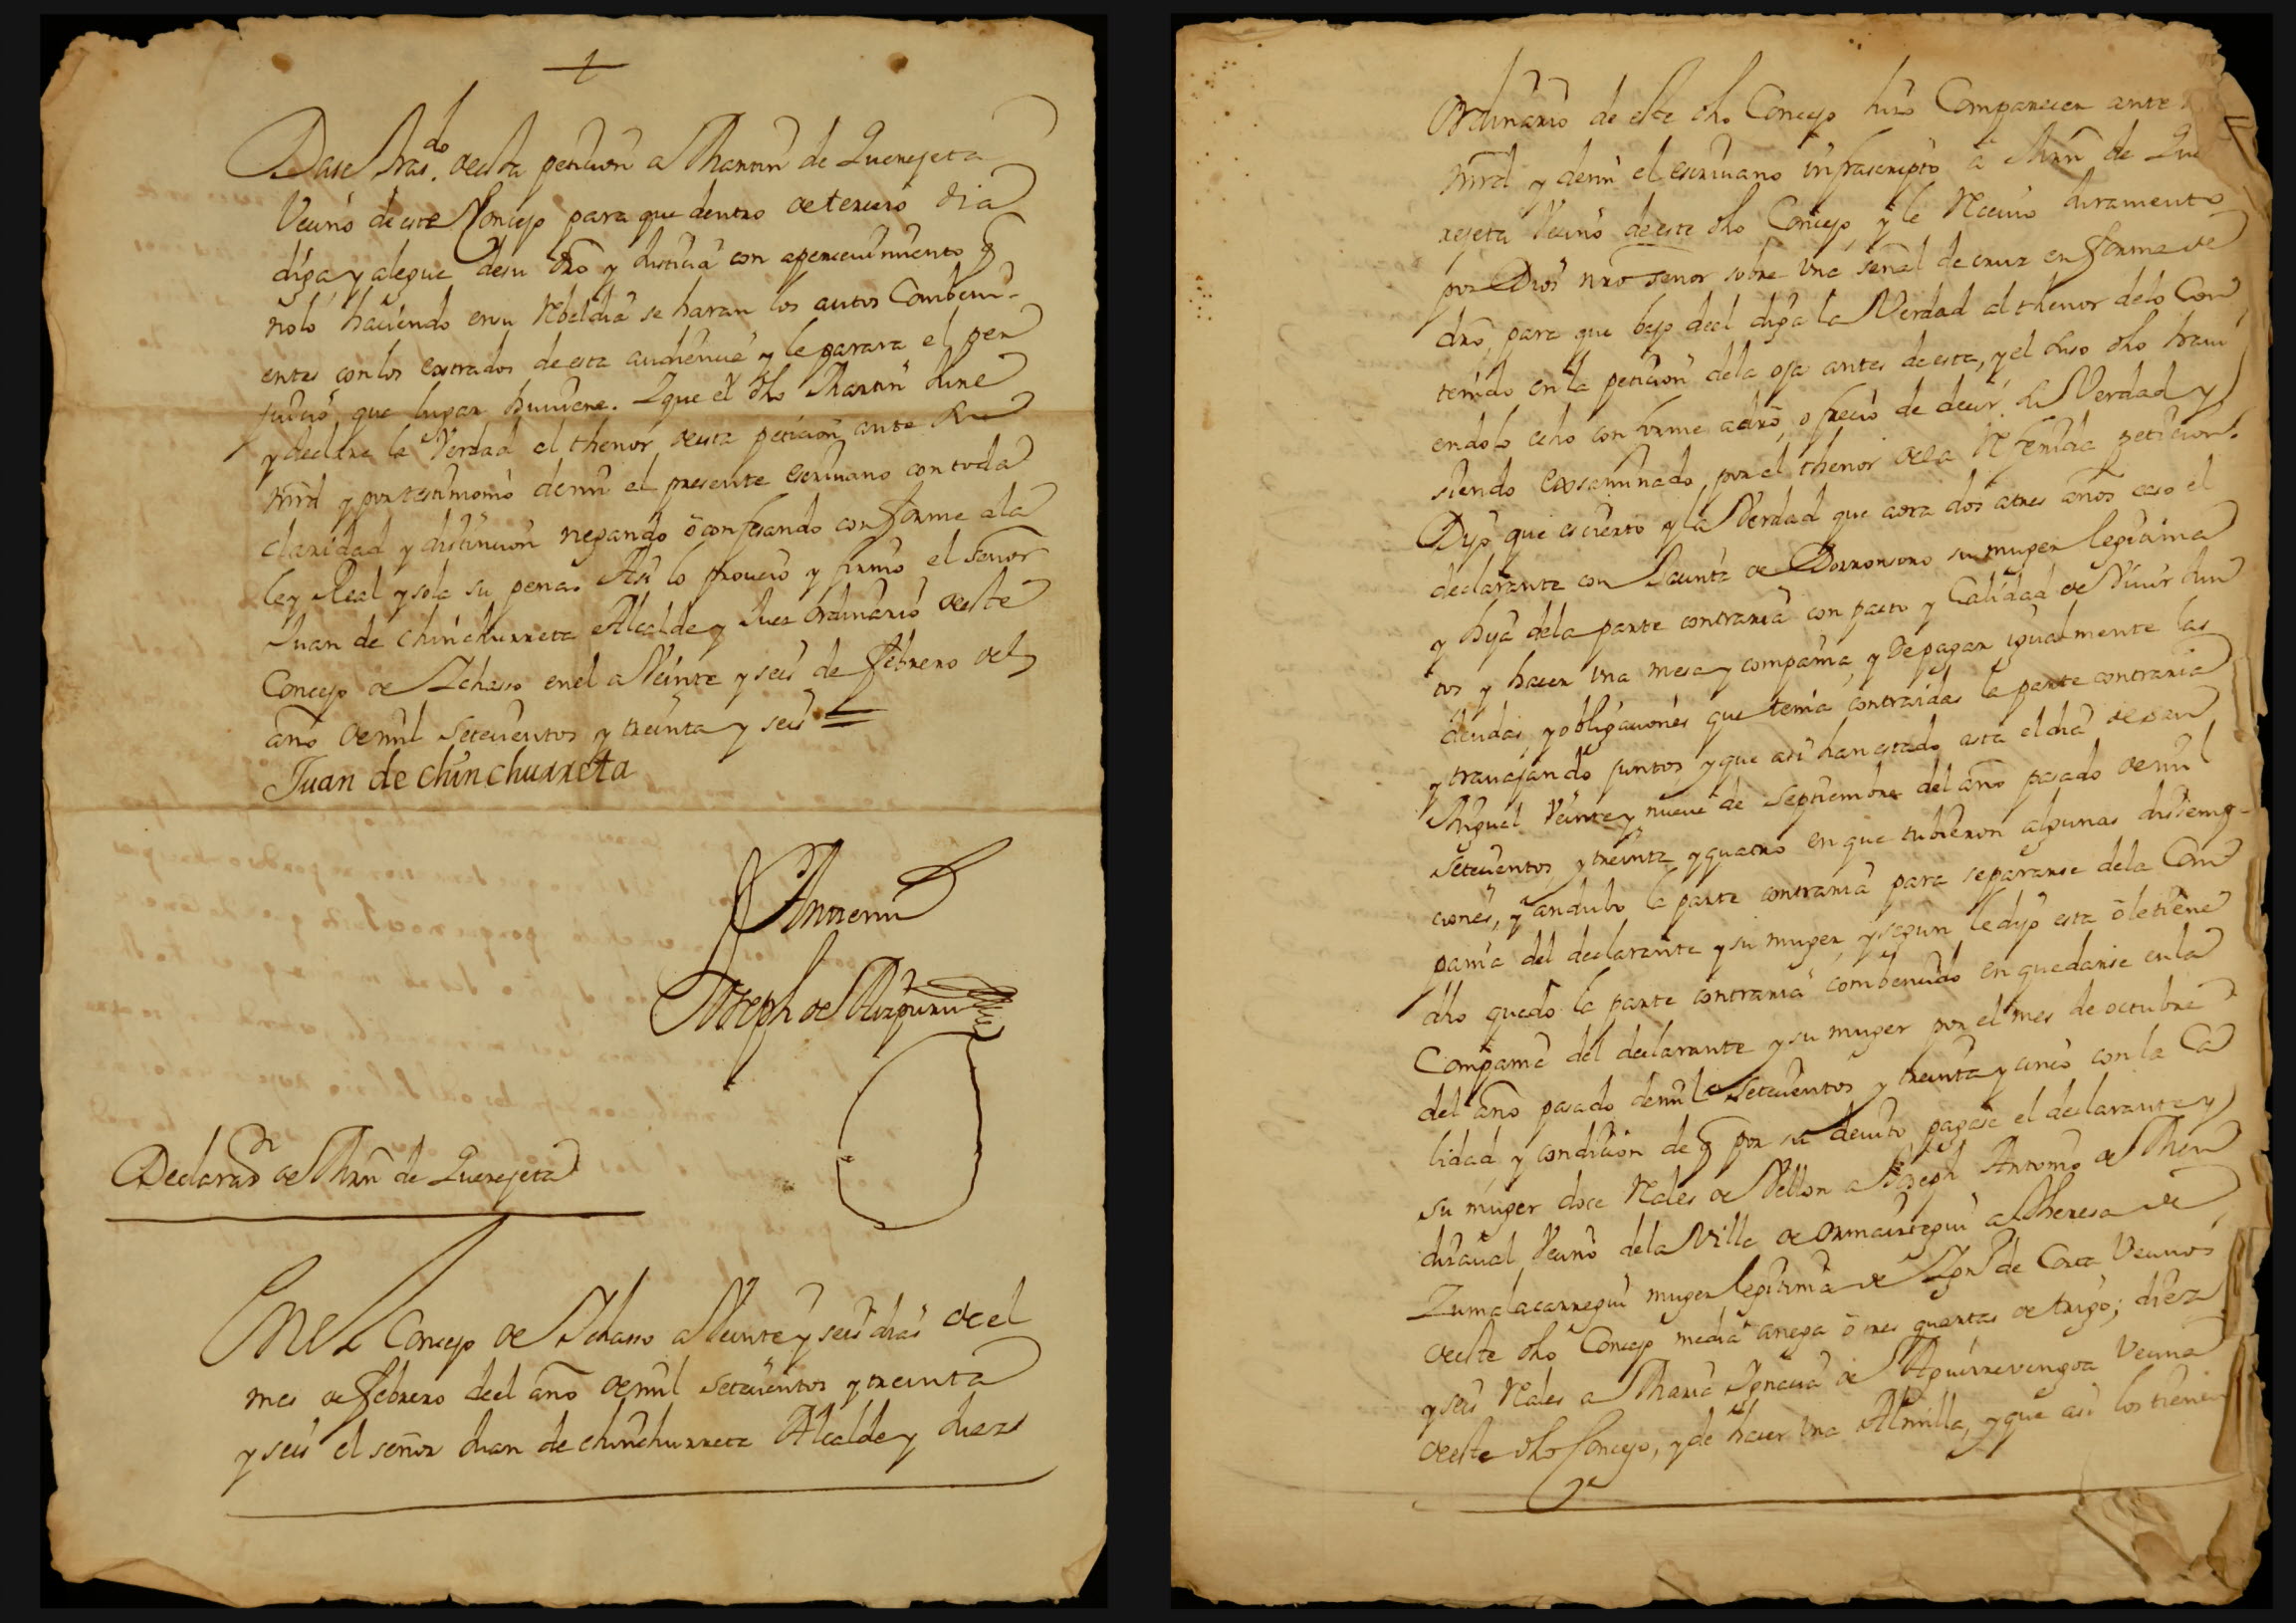 Dase tras.do de esta peticion a Martin de Querejeta
Vecino de este Concejo para que dentro de tercero dia
diga y alegue de su dro y Justicia con apercevimiento q
no lo haciendo en su Rebeldia se haran los autos Combeni-
entes con los estrados de esta audiencia y le parara el per
juicio que lugar huuiere. Y que el dho Martin Jure
y declare la Verdad al thenor de esta peticion ante su
mrd y por testimonio de mi el presente escriuano con toda
claridad y distincion negando o confesando conforme a la
ley Real y so la su pena. Asi lo proueio y firmo el señor
Juan de Chinchurreta Alcalde y Juez ordinario de este
Concejo de Ichaso en el a Veinte y seis de febrero del
año de mil setecientos y treinta y seis =
Juan de chinchurreta
Ante mi
Joseph de Aizpuru
Declaraon de Mrn de Querejeta
En el Concejo de Ichaso a Veinte y seis dias de el
mes de febrero de el año de mil setecientos y treinta
y seis el señor Juan de chinchurreta Alcalde y Juez
Ordinario de este dho Concejo hizo Comparecer ante
mrd y de mi el escriuano infrascripto a Mrn de Que
rejeta Vecino de este dho Concejo, y le Reciuio Juramento
por Dios nro Señor sobre Una señal de cruz en forma de
dro, para que bajo de el diga la Verdad al thenor de lo Con
tenido en la peticion de la oja antes de esta, y el suso dho haui
endolo echo conforme a dro, ofrecio de decir la Verdad y
siendo exsaminado por el thenor de la Referida peticion.
Dijo que es cierto y la Verdad que aora dos a tres años caso el
declarante con Jacinta de Dorronsoro su muger legitima
y hija de la parte contraria con pacto y Calidad de Viuir Jun
tos y hacer Una mesa y compañia, y de pagar igualmente las
deudas y obligaciones que tenia contraidas la parte contraria
y trauajando juntos y que asi han estado asta el dia de san
Miguel Veinte y nueue de septiembre del año pasado de mil
setecientos y treinta y quatro en que tubieron algunas distemp-
ciones, y andubo la parte contraria para separarse de la Com
pañia del declarante y su muger, y segun le dijo esta o le tiene
dho quedo la parte contraria combenido en quedarse en la
Compañia del declarante y su muger por el mes de octubre
del año pasado de mil setecientos y treinta y cinco con la Ca
lidad y condicion de q por su deuito pagase el declarante y
su muger doce Reales de Vellon a Joseph Antonio de Men
dizaual Vecino de la Villa de Ormaiztegui a Theresa de
Zumalacarregui muger legitima de Ign.o de Corta Vecinos
de este dho Concejo media anega o tres quartas de trigo; diez
y seis Reales a Maria Ignacia de Aguirrevengoa Vecina
de este dho Concejo, y de hacer Una Almilla, y que asi los tiene